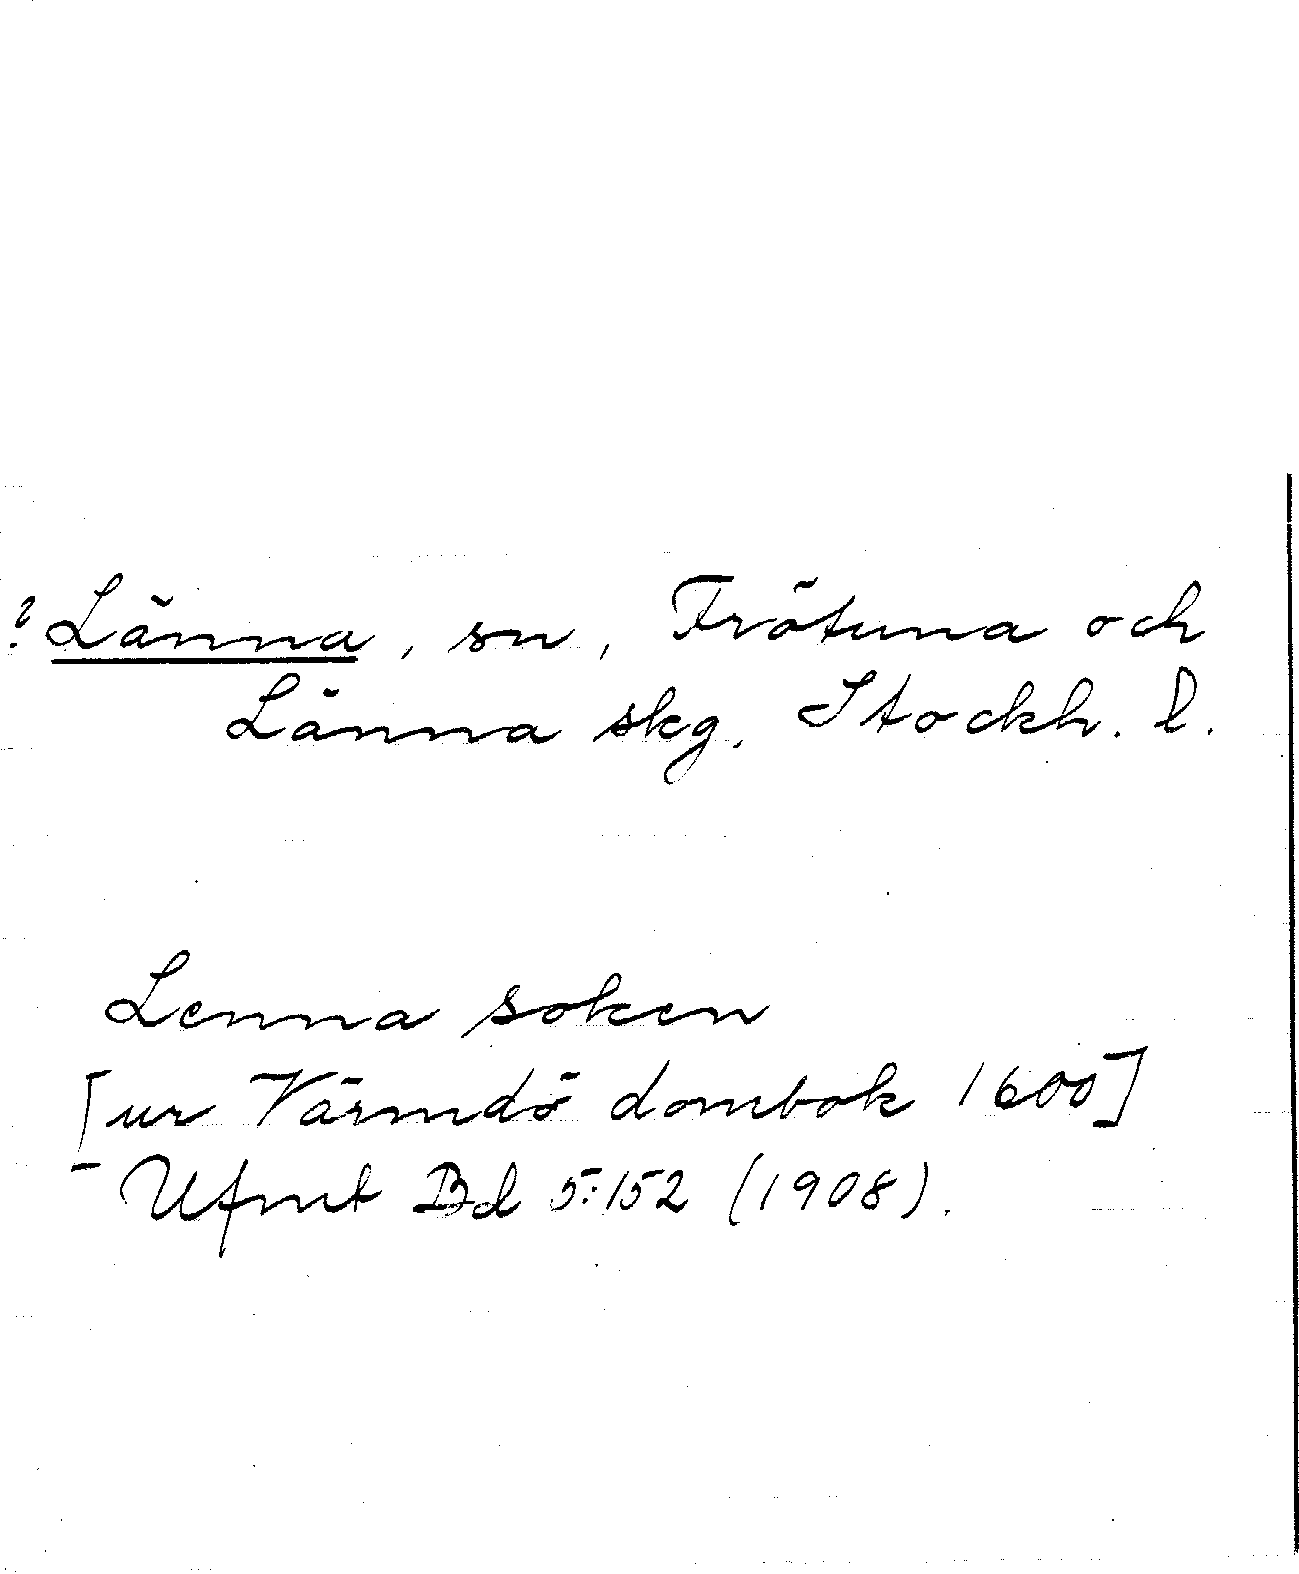 ? Länna, sn, Frötuna och
Länna skg, Stockh. l.
Lenna soken
[ur Värmdö dombok 1600]
Ufmt Bd 5:152 (1908).